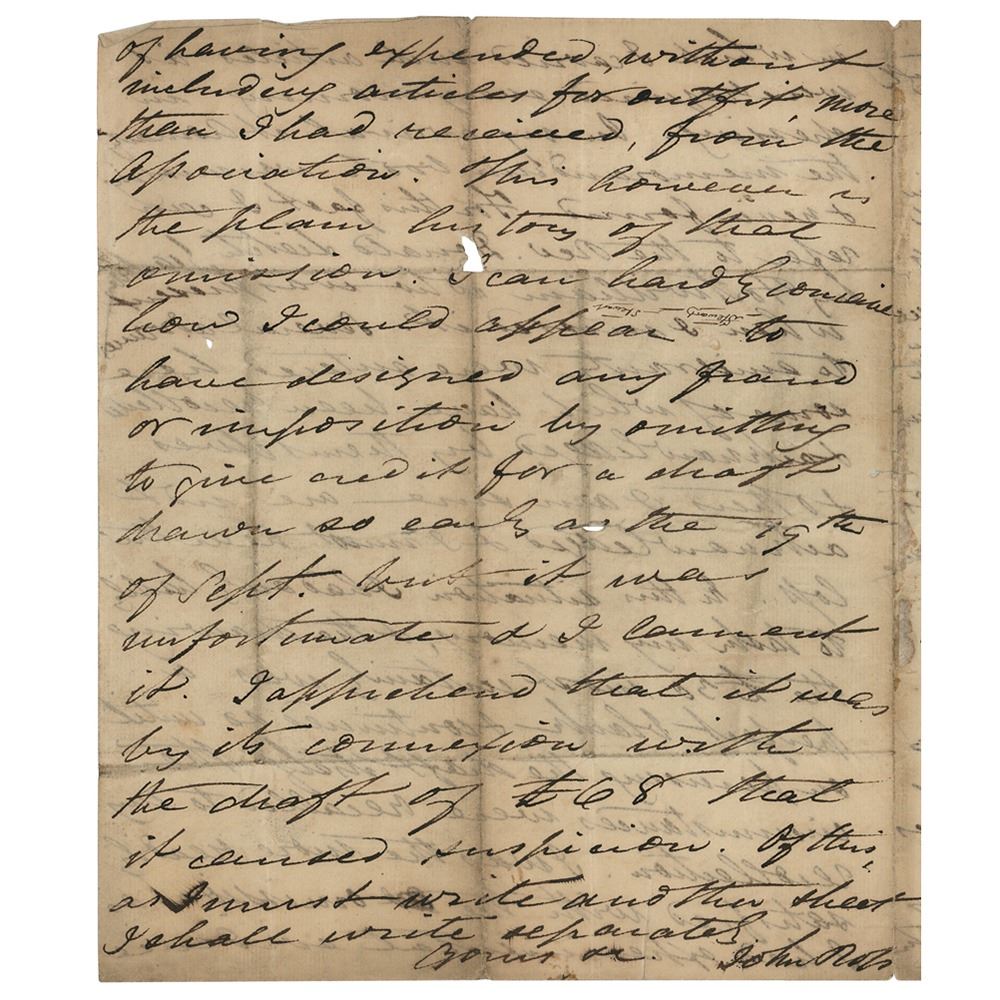 of having expended, without
including articles for outfit more
than I had received, from the
Association. This however is
the plain history of that
omission. I can hardly conceive
how I could appear to
have designed any fraud
or imposition by omitting
to give credit for a draft
drawn so early as the 19th
of Sept. but it was
unfortunate & I lament
it. I apprehend that it was
by its connexion with
the draft of 68 that
it caused suspicion. Of this,
as I must write another sheet
I shall write separately
Yours &c. John Ross